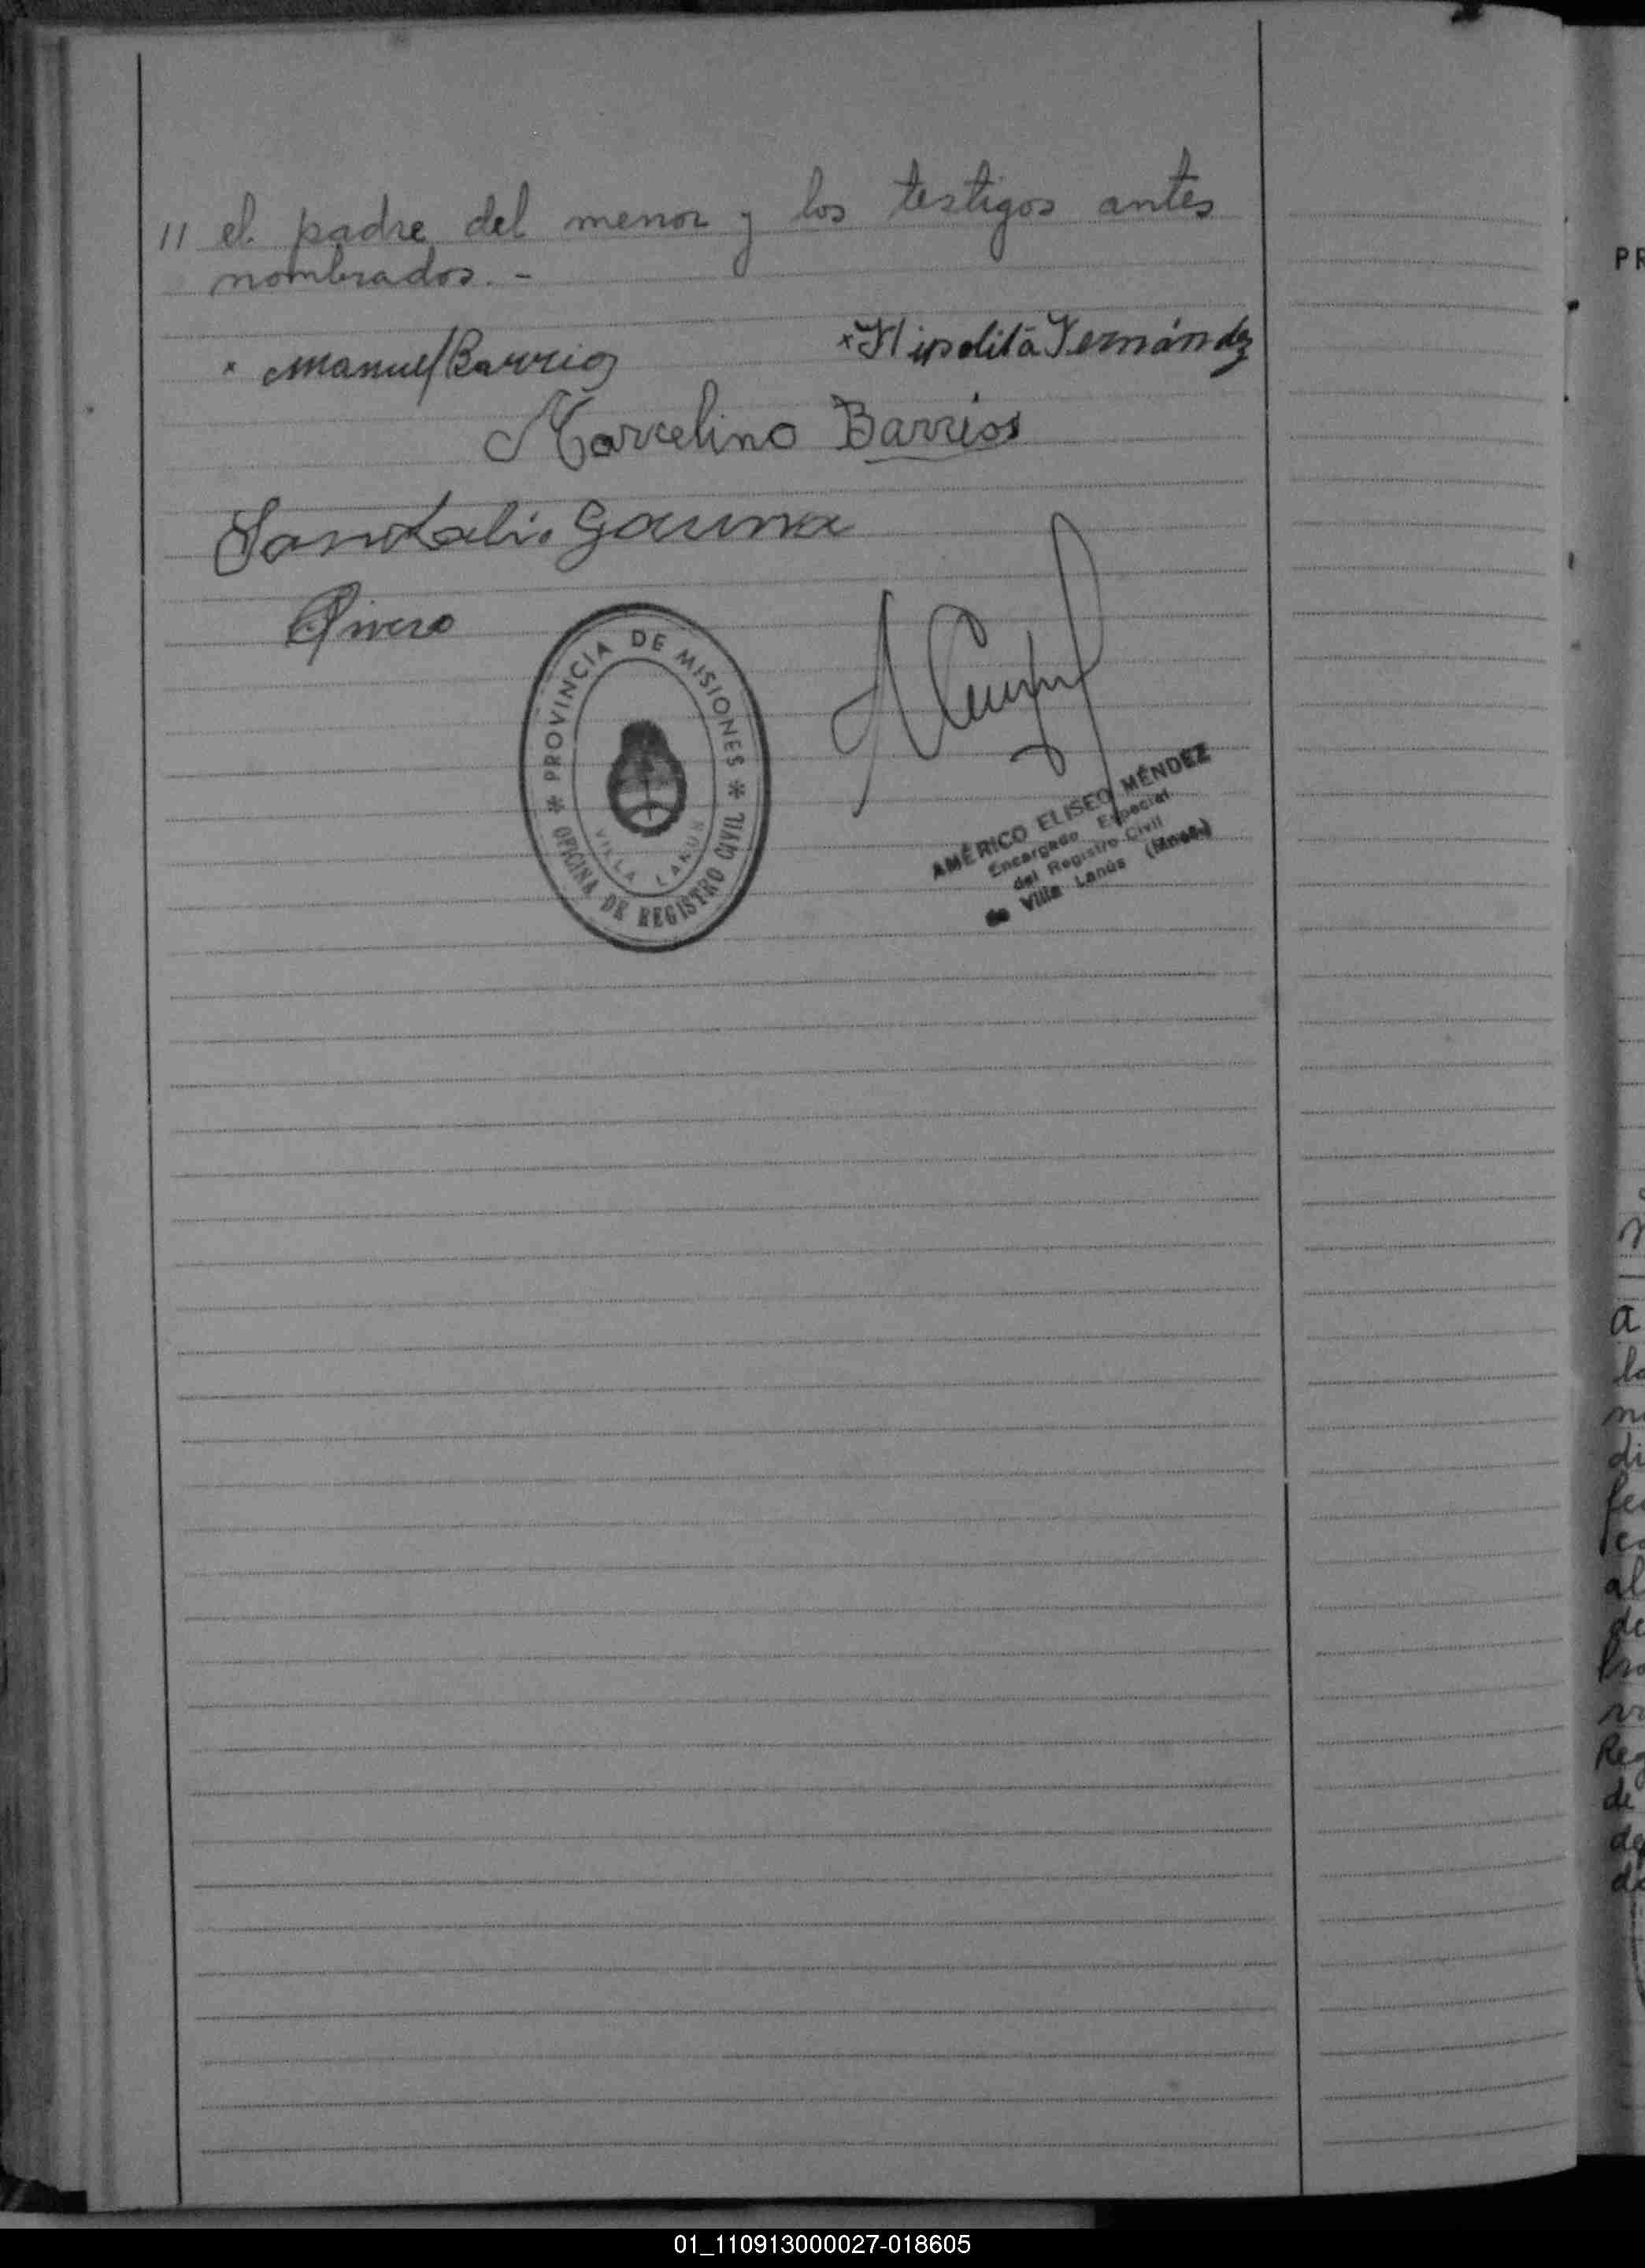 11 el padre del menor y los testigos antes
nombrados. -
x Manuel Barrios
x Hipolita Fernández
Marcelino Barrios
Sandalio Gauna
Rivero
* PROVINCIA DE MISIONES *
OFICINA DE REGISTRO CIVIL
VILLA LANUS
AMÉRICO ELISEO MÉNDEZ
Encargado Especial
del Registro Civil
de Villa Lanús (Mnes.)
PR
a
la
di
al
de
Reg
de
01_110913000027-018605